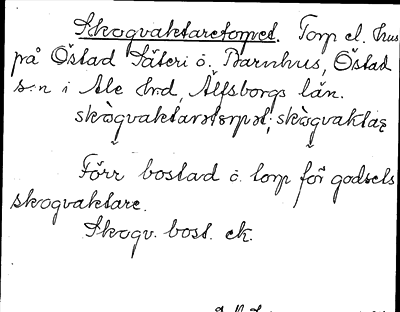 Skogvaktaretorpet. Torp el. hus
på Östad Säteri o. Barnhus, Östad
s:n i Ale Hrd, Älfsborgs län.
skògvaktarətorpət; skògvaktaş
Förr bostad o. torp för godsets
skogvaktare.
Skogv. bost. ek.